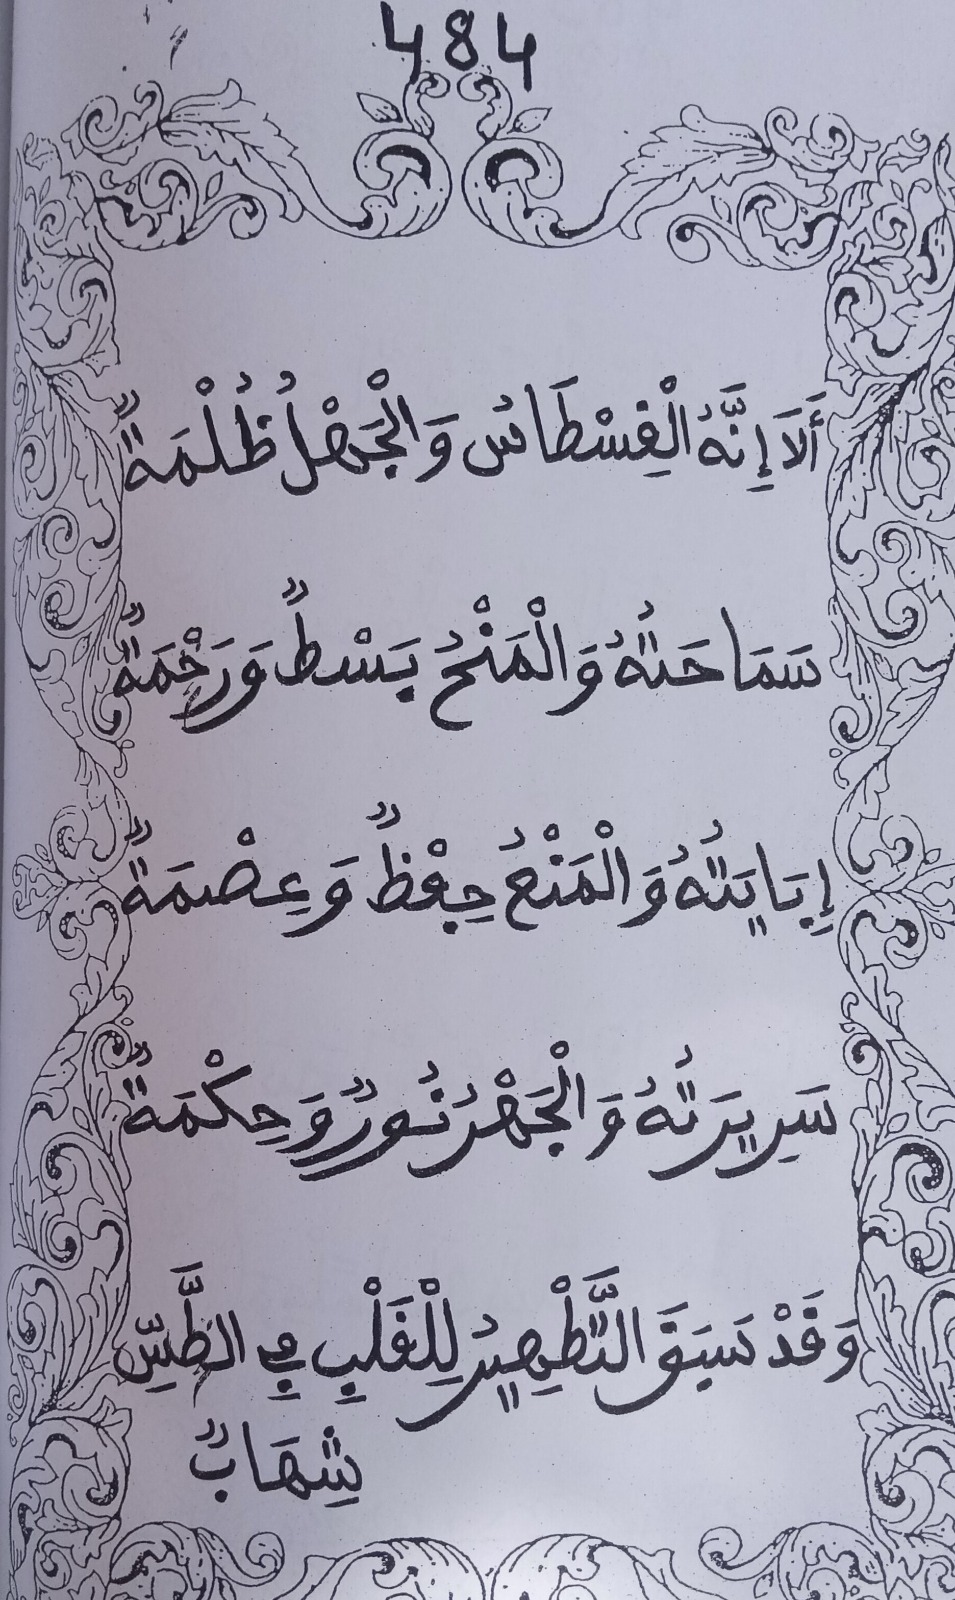 484
أَلَا إِنَّهُ الْفِسْطَاسُ وَالْجَهْلُ ظُلْمَةٌ
سَمَاحَتُهُ وَالْمَنْحُ بَسْطٌ وَرَحْمَةٌ
إِبَايَتُهُ وَالْمَنْعُ حِفْظٌ وَعِصْمَةٌ
سَرِيرَتُهُ وَالْجَهْرُ نُورٌ وَحِكْمَةٌ
وَقَدْ سَبَقَ التَّطْهِيرُ لِلْقَلْبِ فِي الطَّسِّ
شِهَابٌ